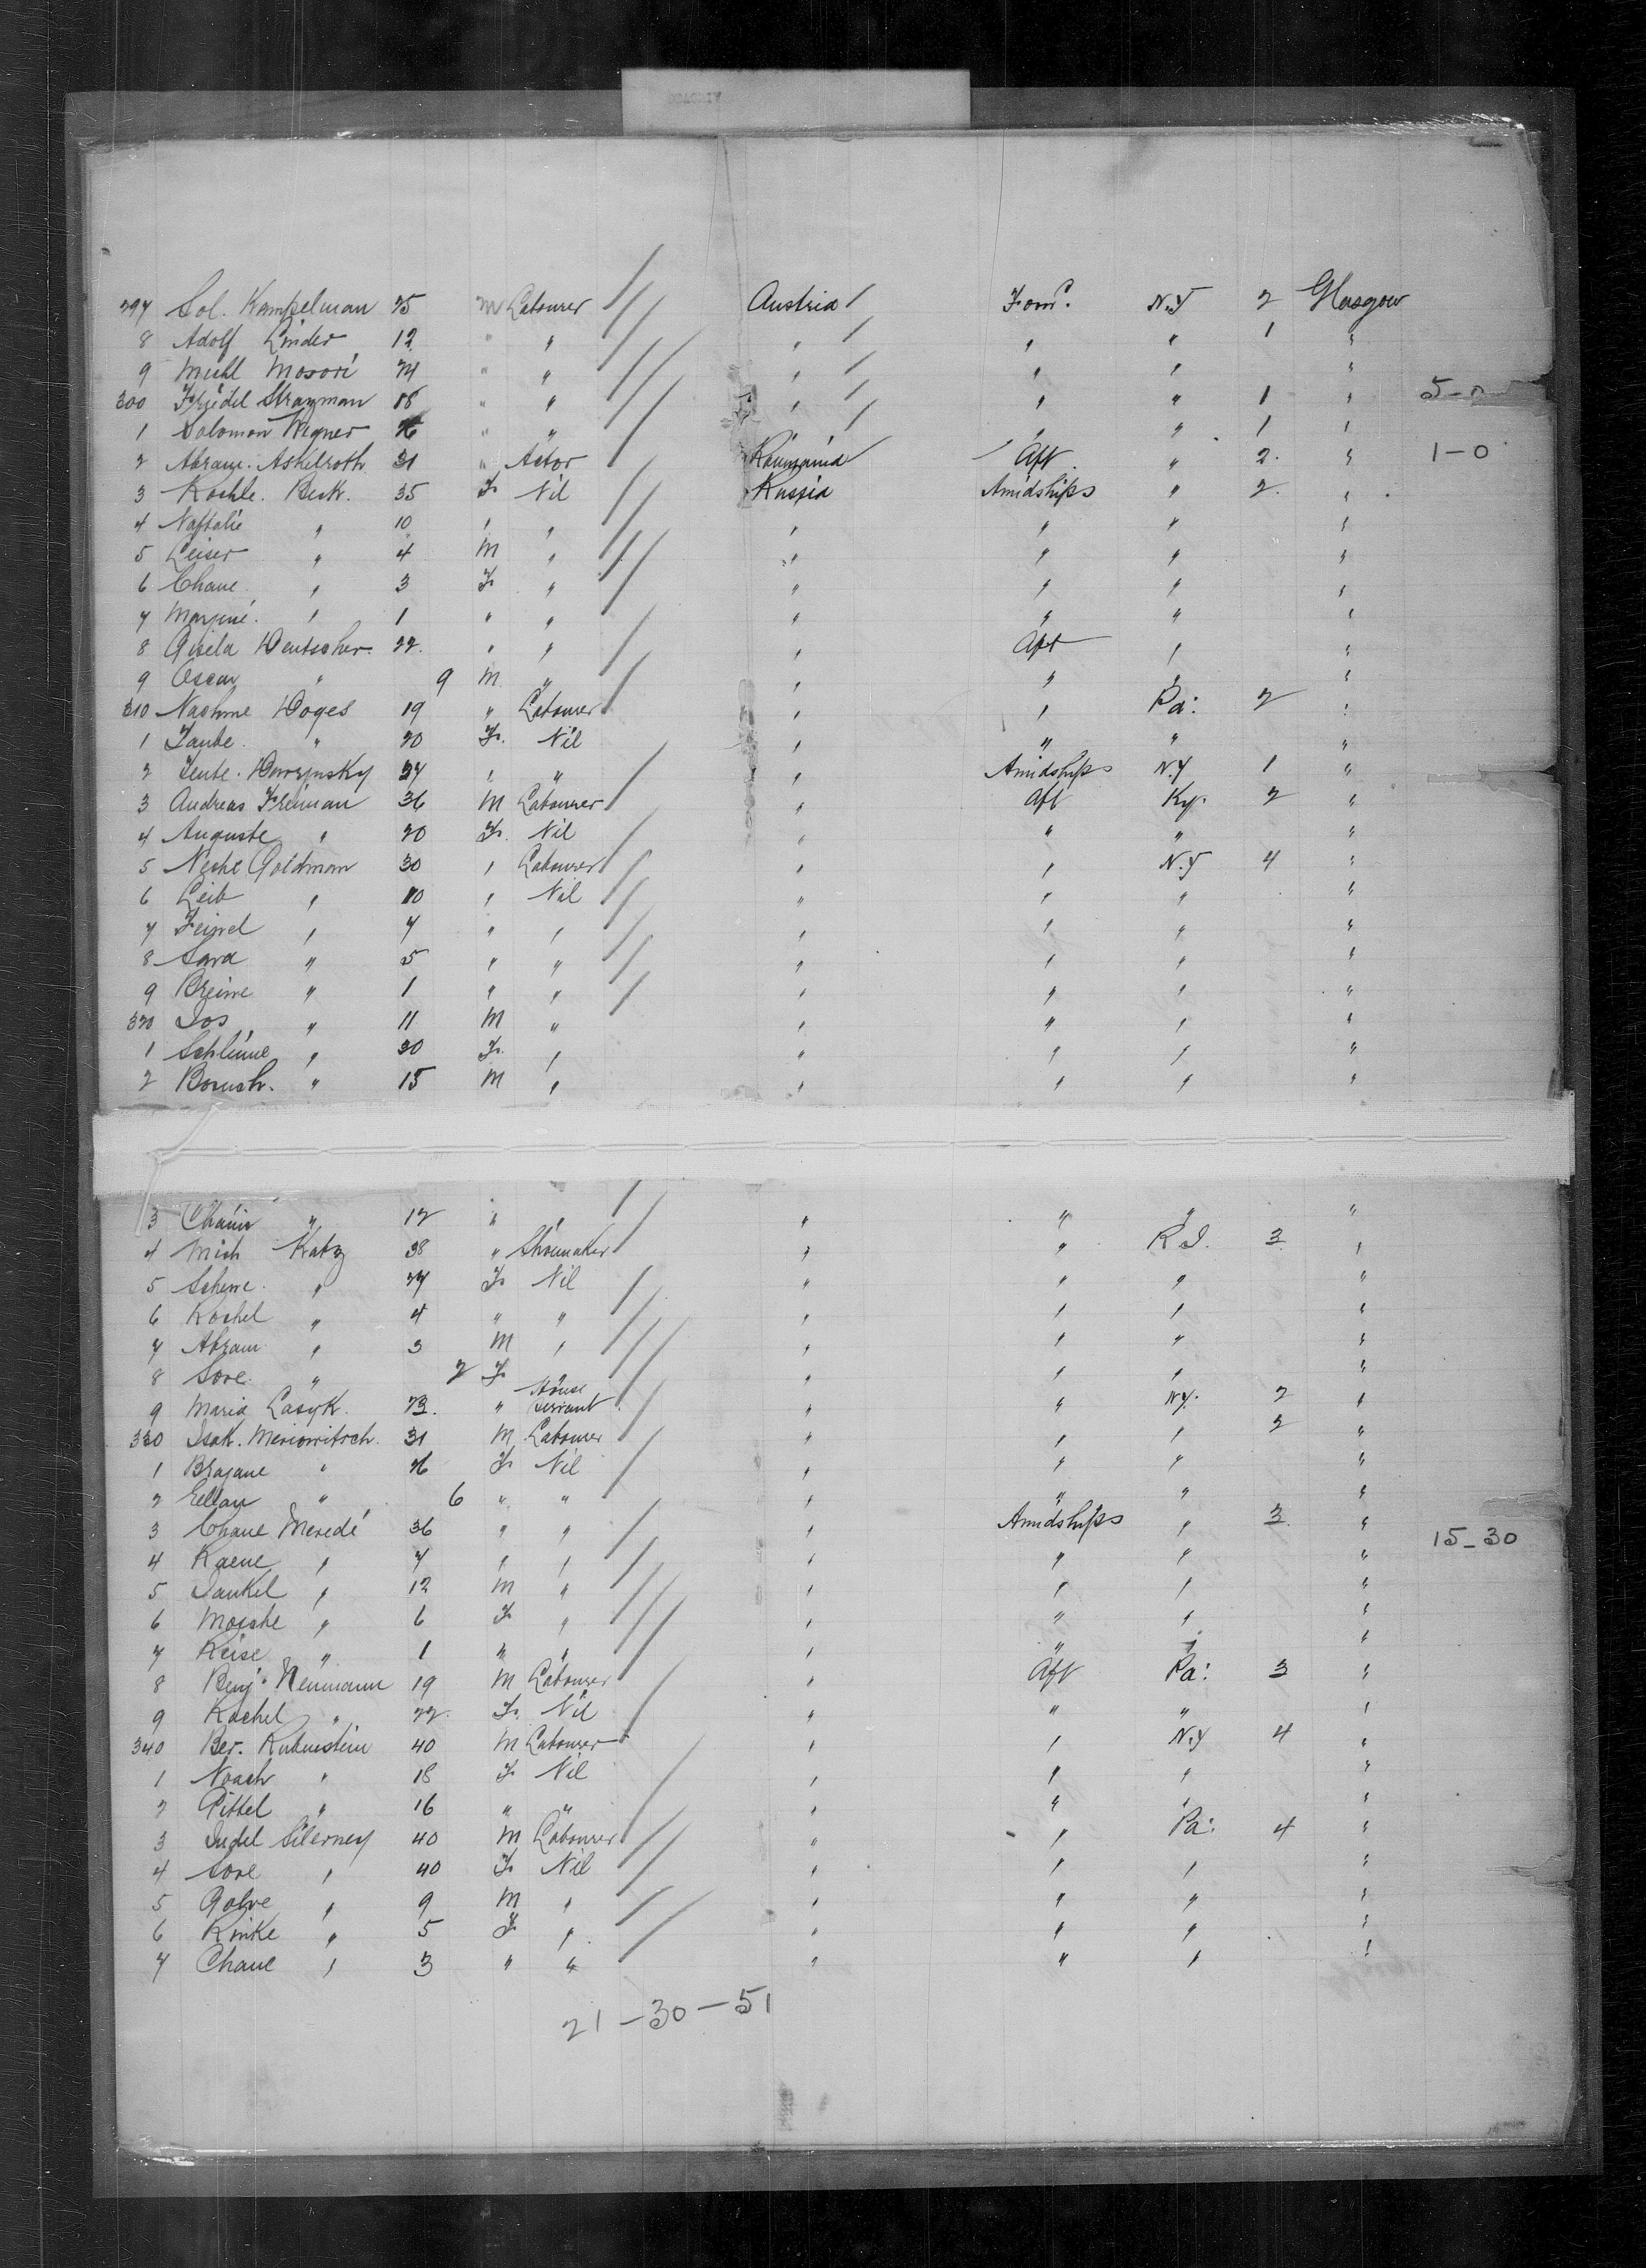 297 Sol. Kampelman 25 m Labourer Austria For'd. N.Y 2 Glasgow
8 Adolf Linder 12 " " " " " 1 "
9 Michl Mosori 24 " " " " " "
300 Friedel Strayman 18 " " " " " 1 " 5-0
1 Solomon Wegner 26 " " " " " 1 "
2 Abram. Askelroth 31 " Actor Roumania Aft " 2. " 1-0
3 Rochle. Beck. 35 F. Nil Russia Amidships " 2. "
4 Naftalie " 10 " " " " " "
5 Leiser " 4 M " " " " "
6 Chane " 3 F. " " " " "
7 " 1 " " " " " "
8 Gisela Deutscher. 22. " " " Aft " "
9 Oscar " 9 M " " " " "
310 Nachme Doges 19 " Labourer " " Pa: 2 "
1 Taube " 20 F. Nil " " " "
2 Tente. 27 " " " Amidships N.Y 1 "
3 Andreas Freiman 36 M Labourer " Aft Ky. 2 "
4 Auguste " 20 F. Nil " " " "
5 Neche Goldman 30 " Labourer " " N.Y 4 "
6 Leib " 10 " Nil " " " "
7 Feiwel " 7 " " " " " "
8 Sara " 5 " " " " " "
9 Breine " 1 " " " " " "
320 Jos " 11 M " " " " "
1 Schlime " 20 F. " " " " "
2 Boruch. " 15 M " " " " "
3 Chaim " 12 " " " " " "
4 Mich Katz 38 " Shoemaker " " R.I. 3 "
5 Scheine " 27 F. Nil " " " "
6 Rochel " 4 " " " " " "
7 Abram " 3 M " " " " "
8 Sore " 2 F. " " " " "
9 Maria Lasyk. 23. " House Servant " " N.Y. 2 "
330 Isak. Meriowitsch. 31 M Labourer " " " 2 "
1 Brajane " 26 F. Nil " " " "
2 " 6 " " " " " "
3 Chane Meredi 36 " " " Amidships " 3. " 15-30
4 " 7 " " " " " "
5 Jankel " 12 M " " " " "
6 Mosche " 6 F. " " " " "
7 Reise " 1 " " " " " "
8 Benj. Neumann 19 M Labourer " Aft Pa: 3 "
9 Rachel " 22. F. Nil " " " "
340 Ber. Rubinstein 40 M Labourer " " N.Y 4 "
1 Noach " 18 F. Nil " " " "
2 Gittel " 16 " " " " " "
3 Judel Silerney 40 M Labourer " " Pa: 4 "
4 Sore " 40 F. Nil " " " "
5 " 9 M " " " " "
6 Rinke " 5 F. " " " " "
7 Chane " 3 " " " " " "
21-30-51